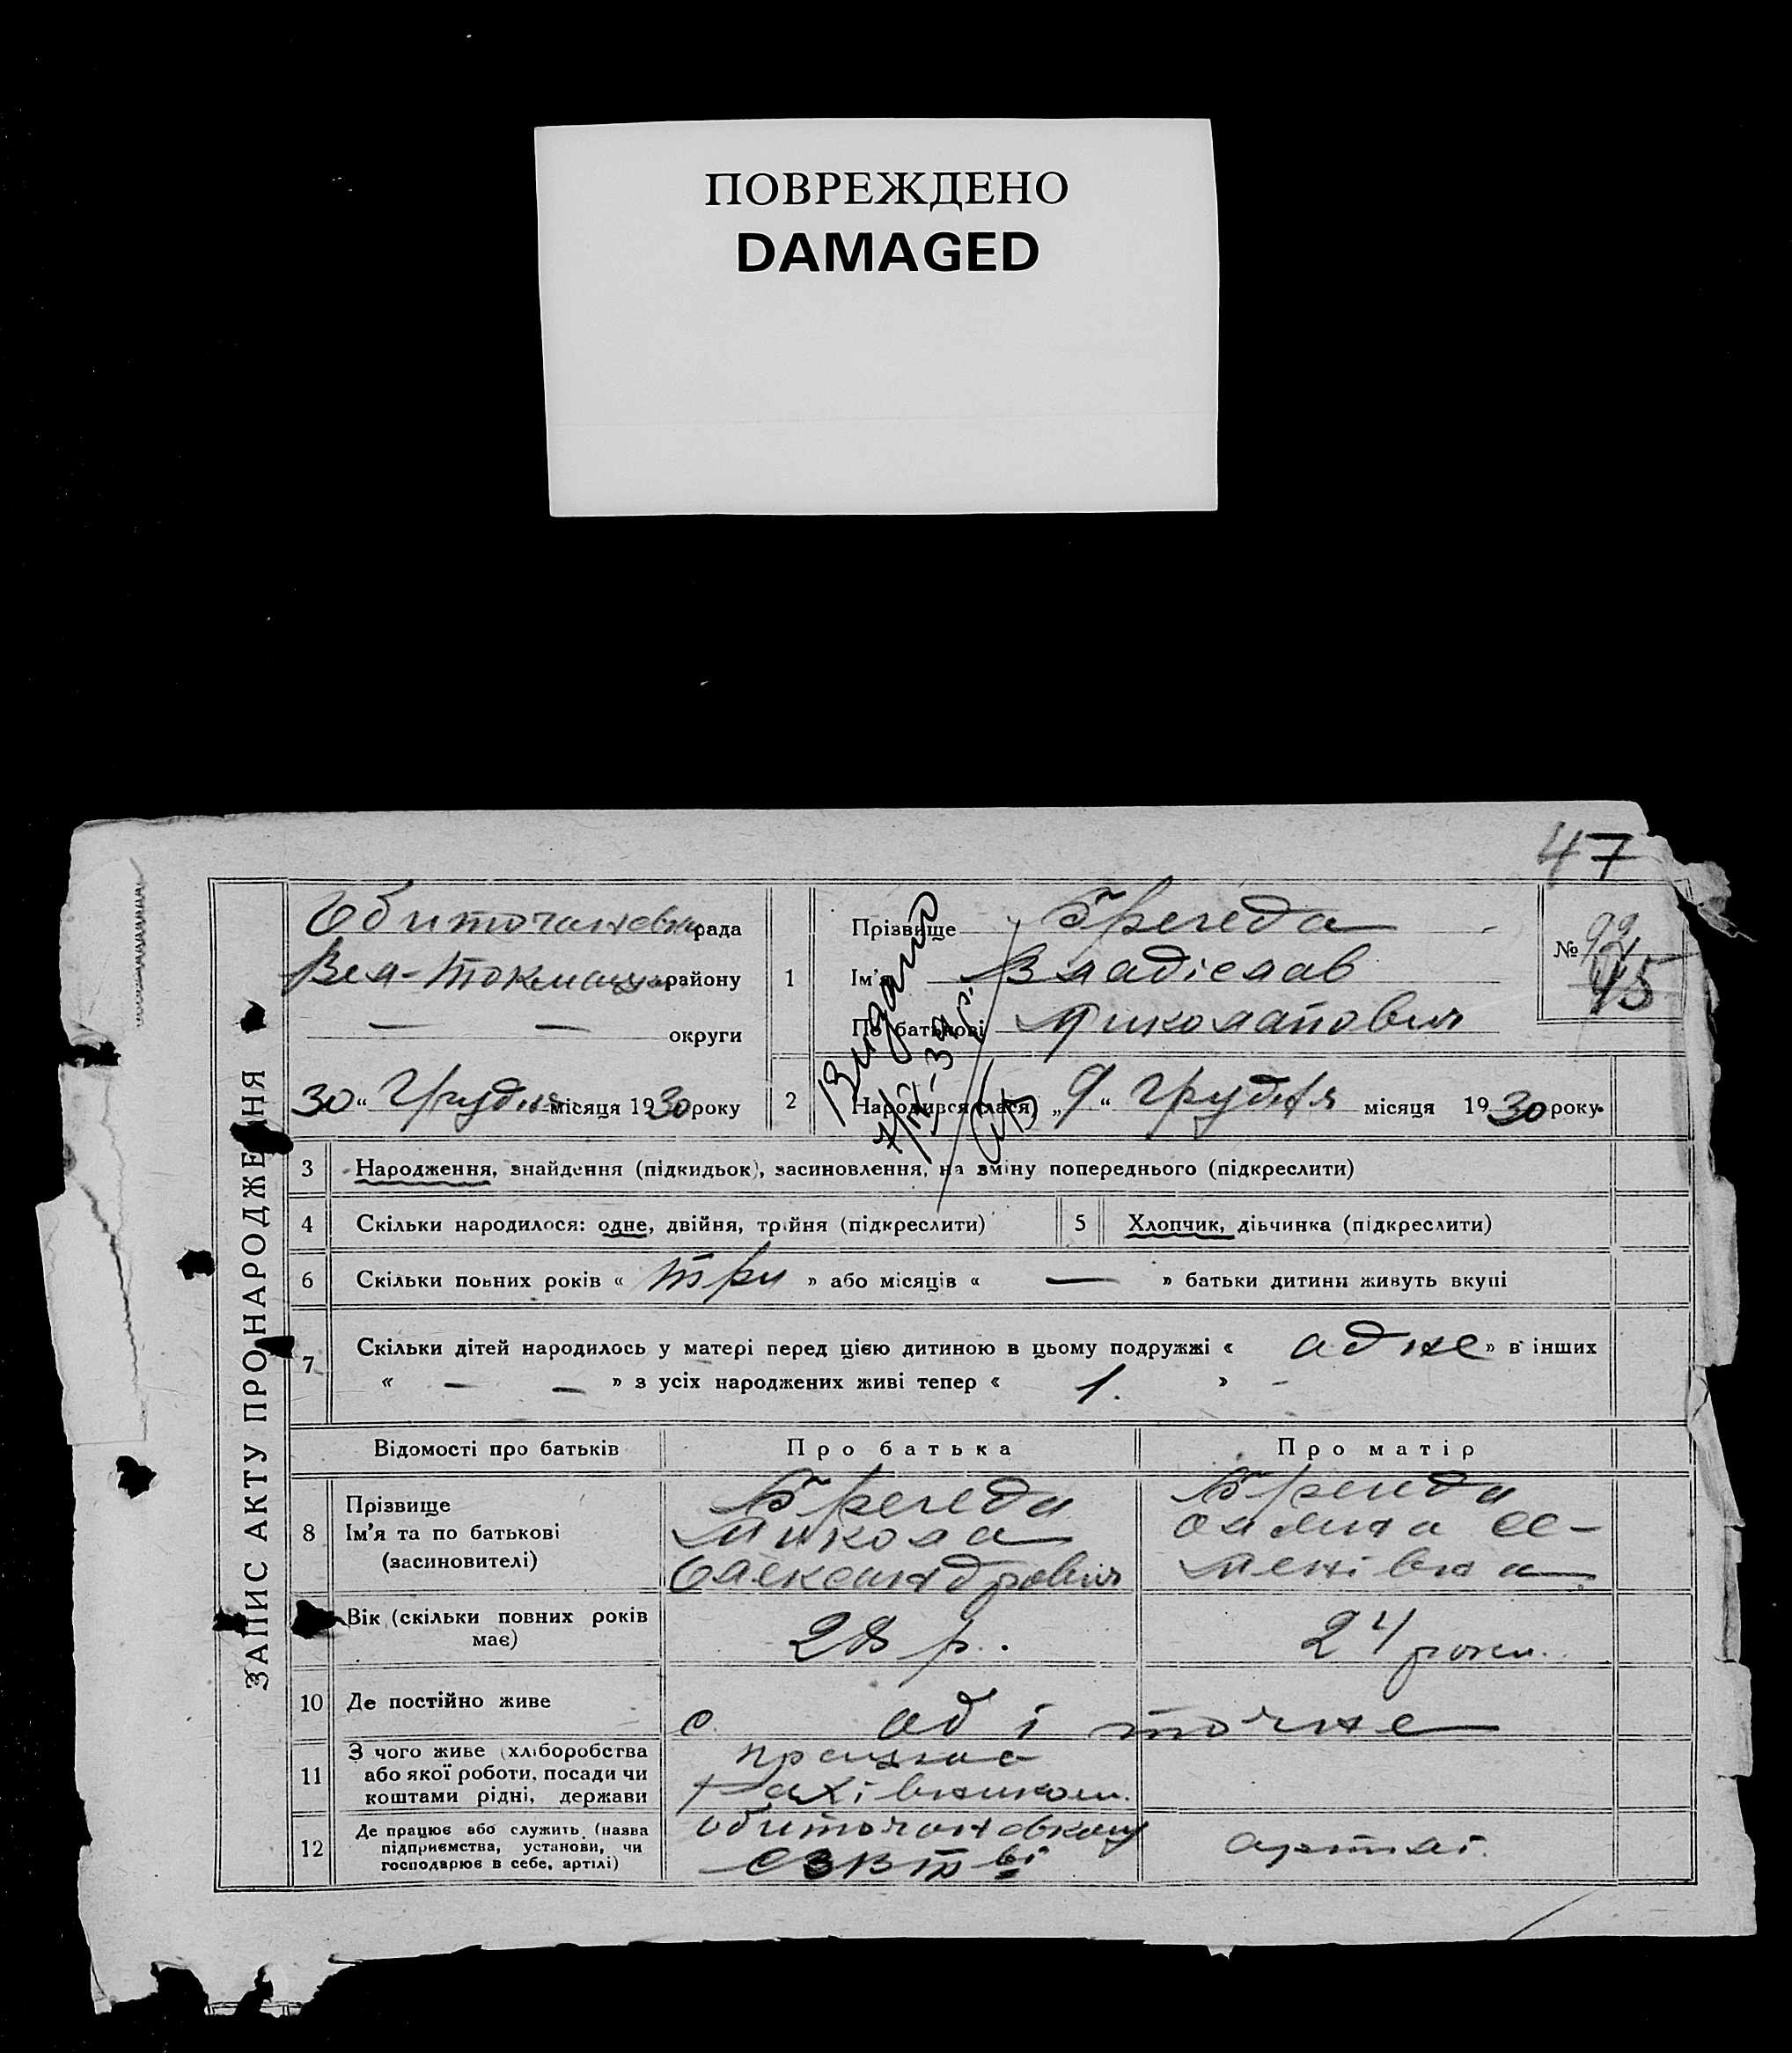 ПОВРЕЖДЕНО
DAMAGED
47
ЗАПИС АКТУ ПРО НАРОДЖЕННЯ
рада
Вел-Токмацьк району
— — округи
30 “ Грудня місяця 1930 року
1
Прізвище
Ім'я Владіслав
По батькові Миколайович
№ 99
45
Видано
2
Народився (лася) „9“ грудня місяця 1930 року
3 Народження, знайдення (підкидьок), засиновлення, на зміну попереднього (підкреслити)
4 Скільки народилося: одне, двійня, трійня (підкреслити)
5 Хлопчик, дівчинка (підкреслити)
6 Скільки повних років « три » або місяців « — » батьки дитини живуть вкупі
7 Скільки дітей народилось у матері перед цією дитиною в цьому подружжі « адне » в інших
« — — » з усіх народжених живі тепер « 1. » -
Відомості про батьків
Про батька
Про матір
8
Прізвище
Ім'я та по батькові
(засиновителі)
Микола
Олександрович
менівна
Вік (скільки повних років має)
28 р.
24 роки.
10 Де постійно живе
с. обіточне
11
З чого живе (хліборобства
або якої роботи, посади чи
коштами рідні, держави
працює
рахівником.
12
Де працює або служить (назва
підприємства, установи, чи
господарює в себе, артілі)
артілі.